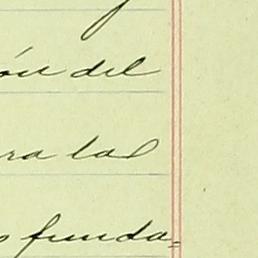 ón del
ra las
s funda-